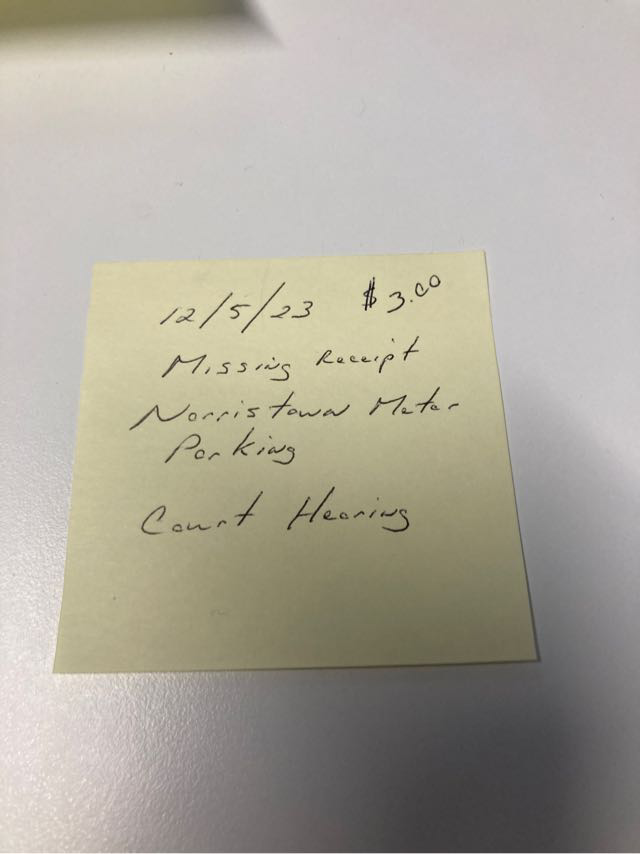 12/5/23 $3.00
Missing Receipt
Norristown Meter
Parking
Court Hearing